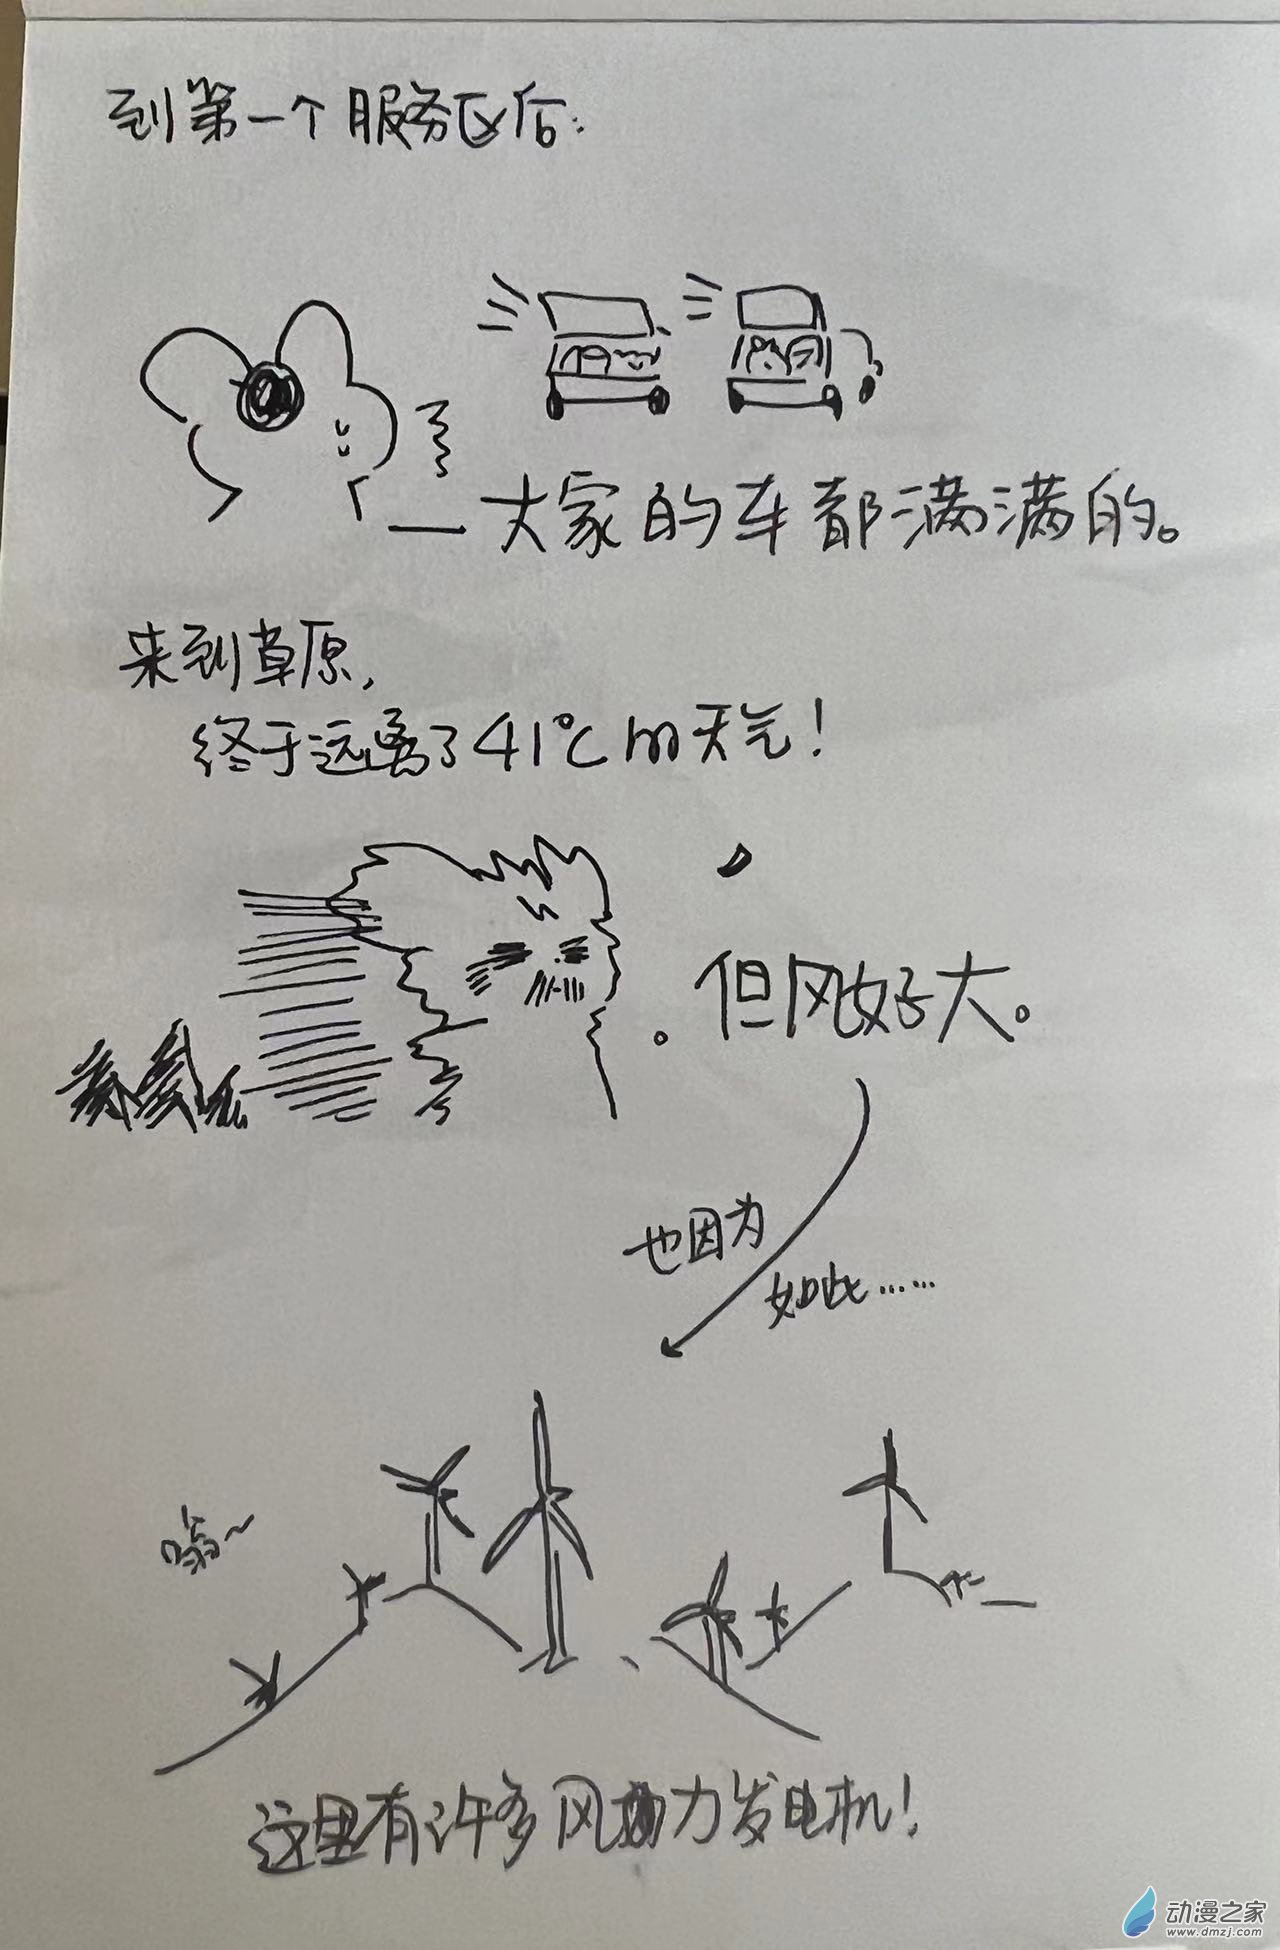 到第一个服务区后:
大家的车都满满的。
来到草原,
终于远离了41℃的天气!
但风好大。
也因为
如此……
嗡~
这里有许多风力发电机!
动漫之家
www.dmzj.com